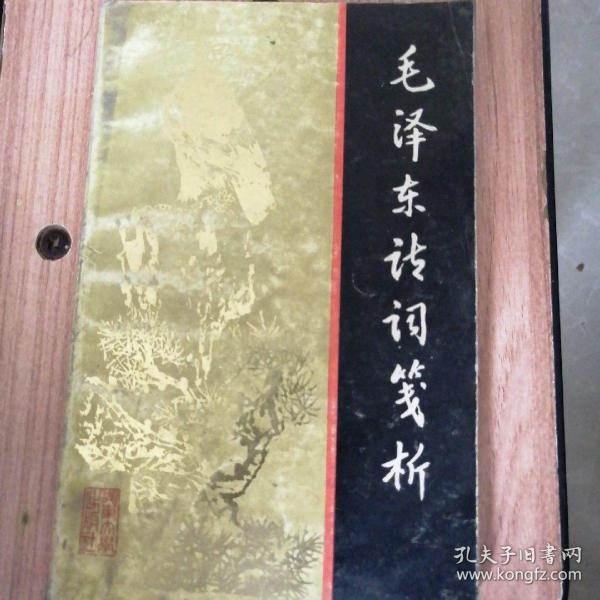 毛泽东诗词笺析
孔夫子旧书网
www.kongfz.com